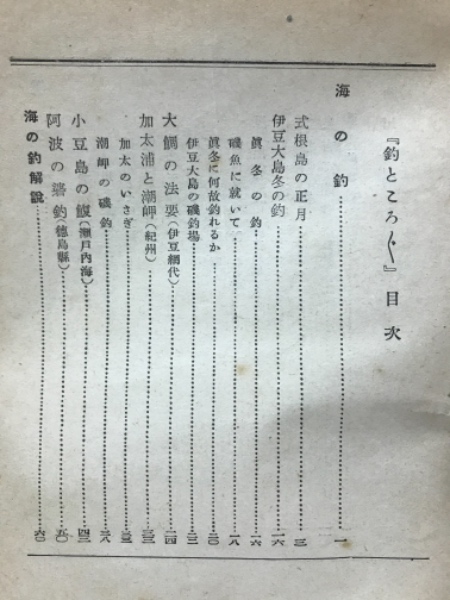 『釣ところ〴〵』目次
海の釣……一
式根島の正月……三
伊豆大島冬の釣……一六
眞冬の釣……一六
磯魚に就いて……一八
眞冬に何故釣れるか……二〇
伊豆大島の磯釣場……二二
大鯛の法要(伊豆網代)……二四
加太浦と潮岬(紀州)……三三
加太のいさぎ……三三
潮岬の磯釣……三八
小豆島の鰒(瀬戸内海)……四三
阿波の釣(德島縣)……五〇
海の釣解說……六〇